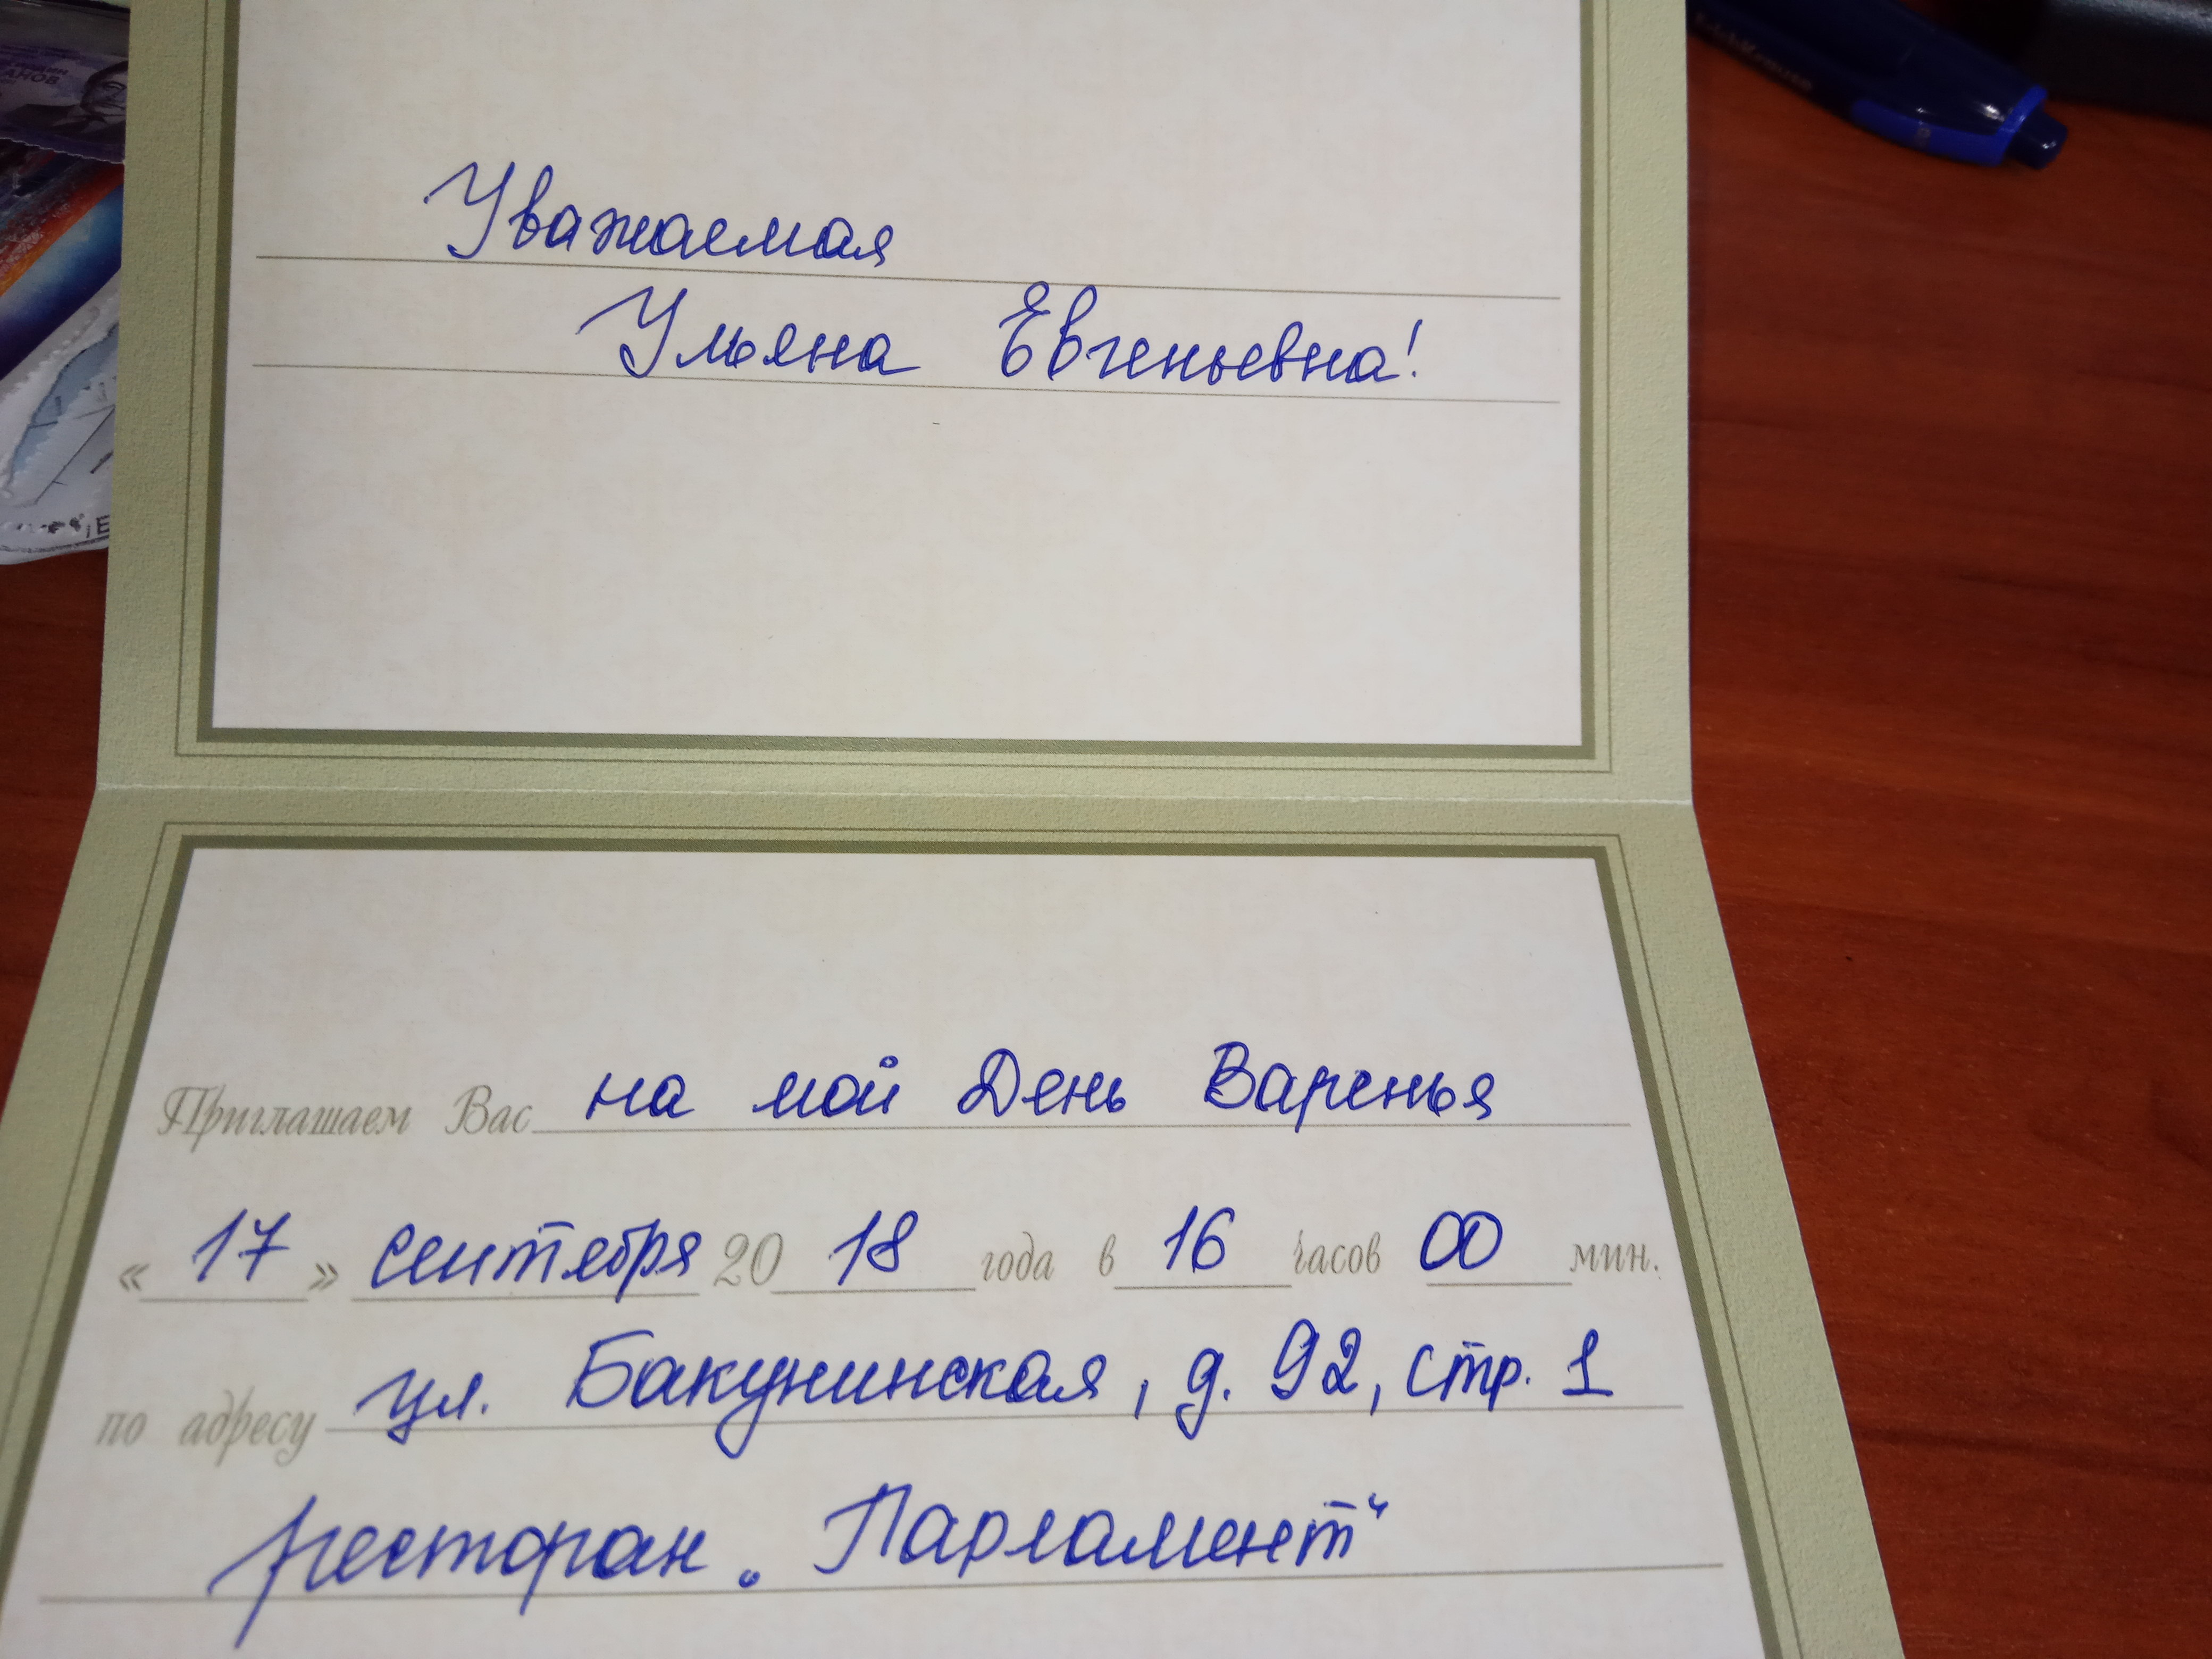 Уважаемая
Ульяна Евгеньевна!
Приглашаем Вас на мой День Варенья
« 17 » сентября 20 18 года в 16 часов 00 мин.
по адресу ул. Бакунинская, д. 92, стр. 1
ресторан „Парламент“